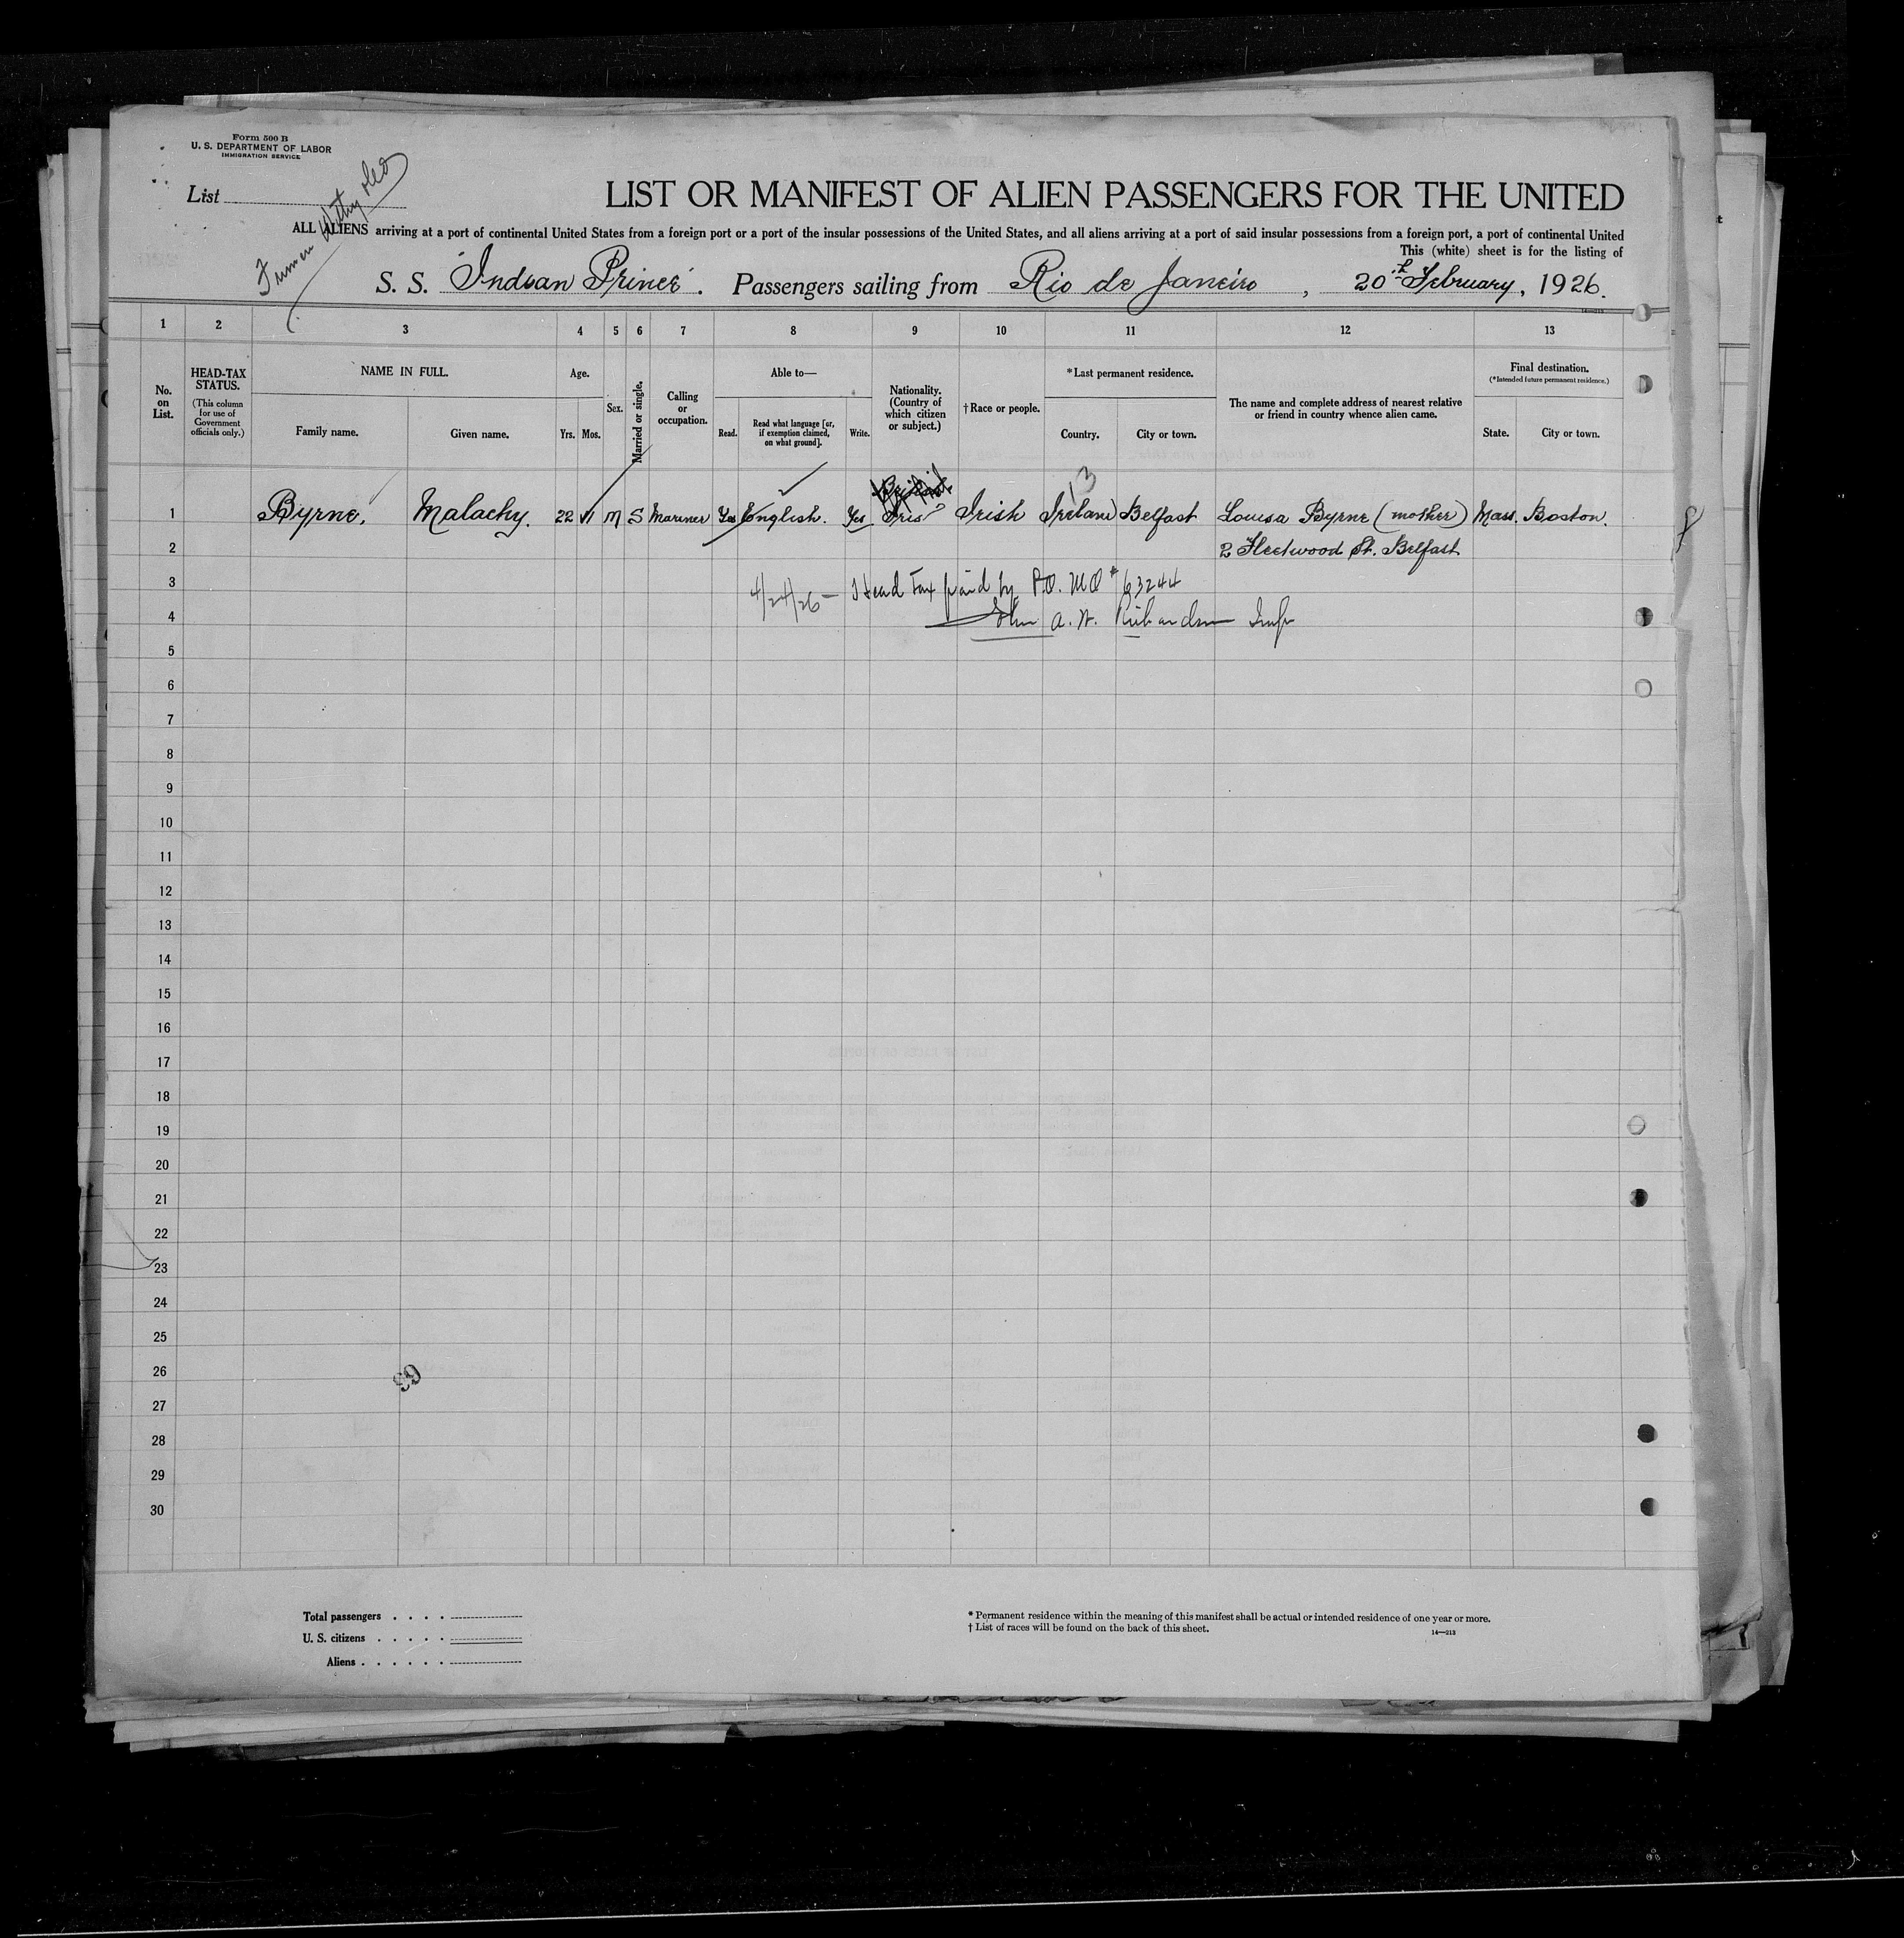 Form 500 B
U. S. DEPARTMENT OF LABOR
IMMIGRATION SERVICE
List
LIST OR MANIFEST OF ALIEN PASSENGERS FOR THE UNITED
ALL ALIENS arriving at a port of continental United States from a foreign port or a port of the insular possessions of the United States, and all aliens arriving at a port of said insular possessions from a foreign port, a port of continental United
This (white) sheet is for the listing of
S. S. "Indian Prince". Passengers sailing from Rio de Janeiro, 20th February, 1926.
14—213
1 2 3 4 5 6 7 8 9 10 11 12 13
No. on List.
HEAD-TAX STATUS.
(This column for use of Government officials only.)
NAME IN FULL.
Family name. Given name.
Age.
Yrs. Mos.
Sex.
Married or single.
Calling or occupation.
Able to—
Read. Read what language [or, if exemption claimed, on what ground]. Write.
Nationality. (Country of which citizen or subject.)
† Race or people.
*Last permanent residence.
Country. City or town.
The name and complete address of nearest relative or friend in country whence alien came.
Final destination.
(*Intended future permanent residence.)
State. City or town.
13
1 Byrne, Malachy. 22 M S Mariner Yes English. Yes Irish Ireland Belfast Louisa Byrne (mother) Mass. Boston.
2 2 Fleetwood St. Belfast
3 4/24/26 — Head Tax paid by P.O. MO # 63244
4 John A. W. Richardson Insp
5
6
7
8
9
10
11
12
13
14
15
16
17
18
19
20
21
22
23
24
25
26
27
28
29
30
Total passengers
U. S. citizens
Aliens
* Permanent residence within the meaning of this manifest shall be actual or intended residence of one year or more.
† List of races will be found on the back of this sheet.
14—213